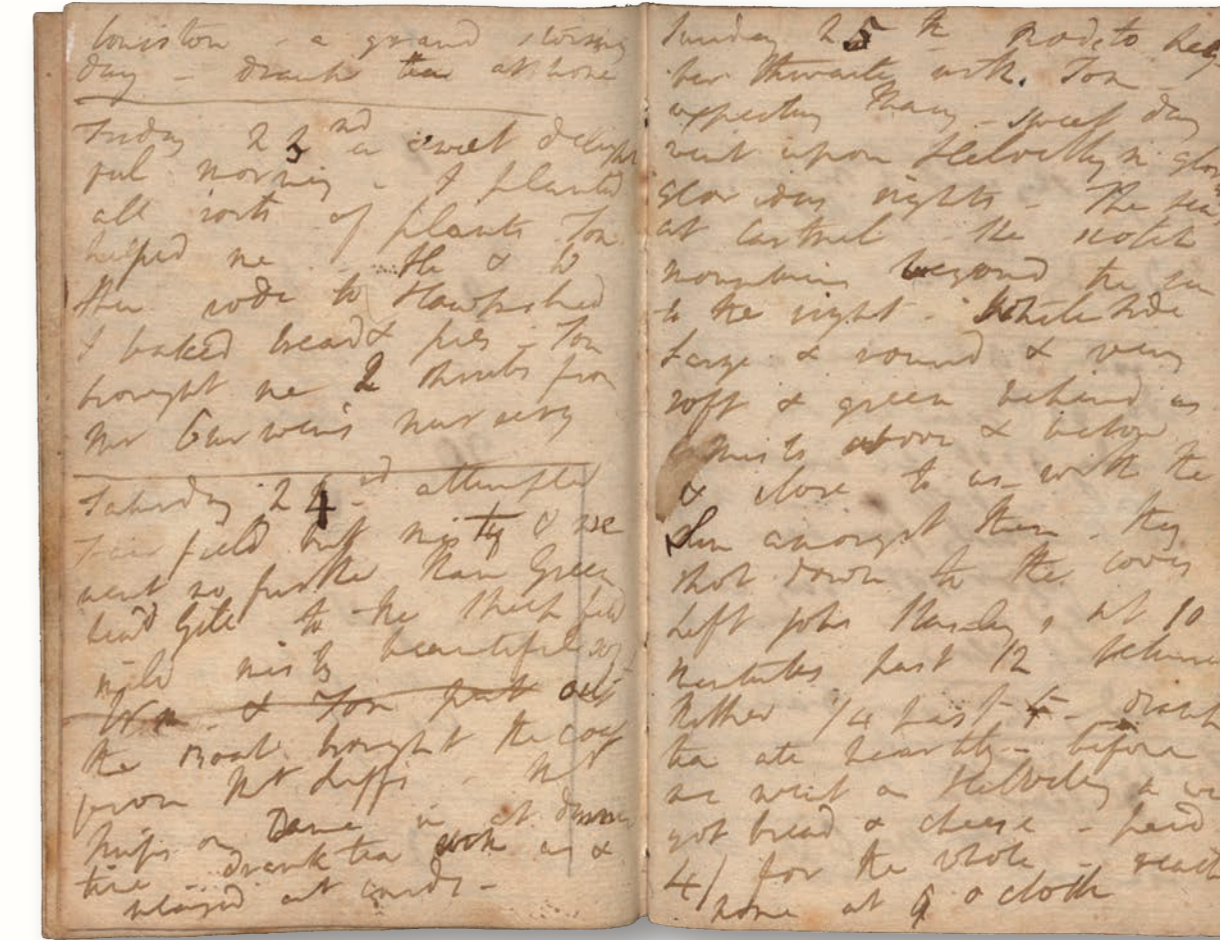 Coniston - a grand stormy
day - drank tea at home
Friday 23rd a sweet delight
ful morning - I planted
all sorts of plants Tom
helped me - He & W
then rode to Hawkshead
I baked bread & pies - Tom
brought me 2 shrubs from
Mr Curwen's nursery
Saturday 24 attempted
Fairfield but misty & we
went no further than Green
head Gill to the sheepfold
mild misty beautiful soft
Wm & Tom put out
the Boat brought the coat
from Mr Luff's - Mr
Simpson came in at dinner
time - drank tea with us &
played at cards -
Sunday 25th Rode to Leg
ber thwaite with Tom -
expecting Mary - sweet day
went upon Helvellyn glor
glorious sights - The sea
at Cartmel - The Scotch
mountains beyond the sea
to the right - Whiteside
large & round & very
soft & green behind us
mists above & below
& close to us with the
Sun amongst them - they
shot down to the coves
Left John Stanley's at 10
minutes past 12 returned
thither 1/4 past 4 - drank
tea ate heartily - before
we went on Helvellyn we
got bread & cheese - paid
4/ for the whole - reach
home at 9 o clock